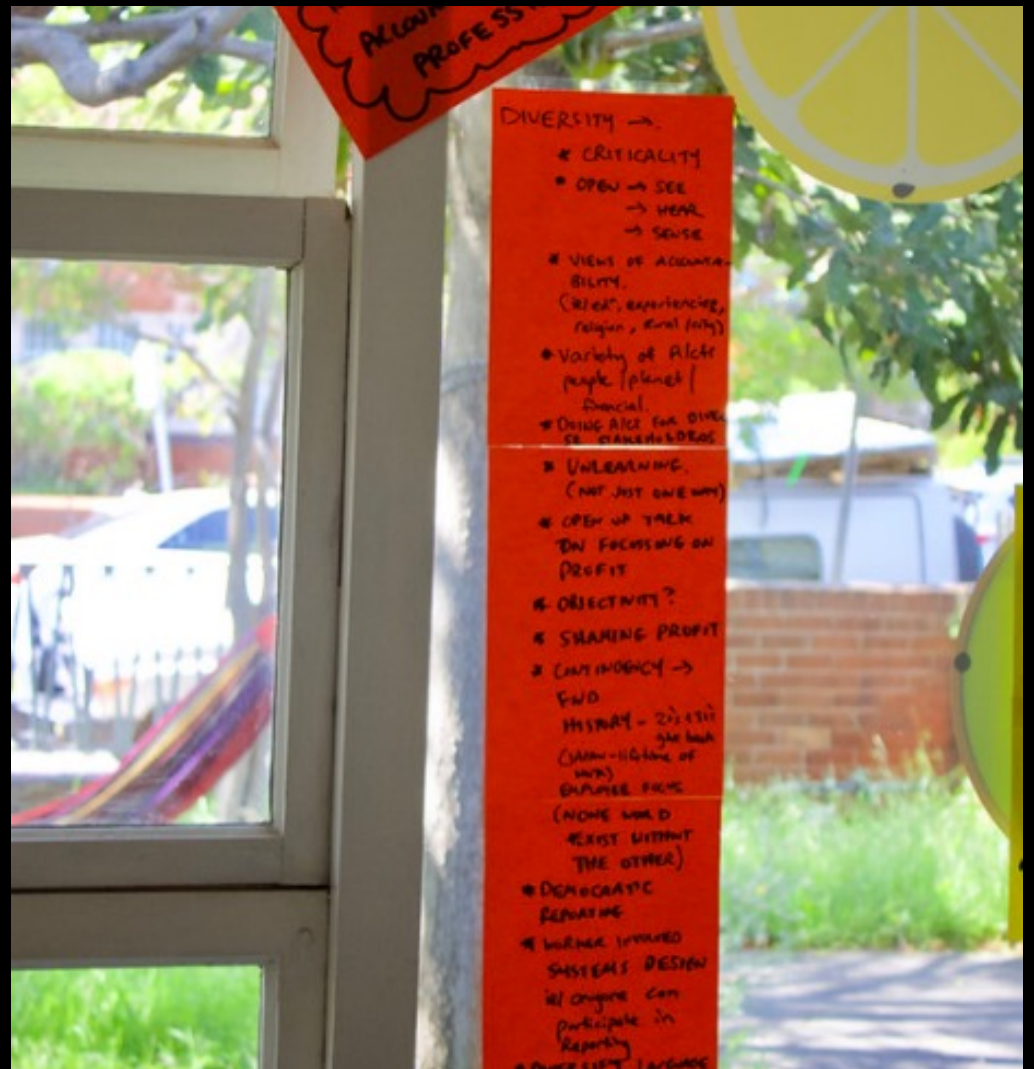 PROFESS
DIVERSITY →.
* CRITICALITY
* OPEN → SEE
→ HEAR
→ SENSE
* VIEWS OF ACCOUNTA-
BILITY.
experiencing,
religion, rural / city)
* Variety of A/cts
people / planet /
financial.
* DOING A/CS FOR DIVER
SE STAKEHOLDERS
* UNLEARNING.
(NOT JUST ONE WAY)
* OPEN UP TALK
ON FOCUSSING ON
PROFIT
* OBJECTIVITY?
* SHARING PROFIT
* CONTINGENCY →
FWD
HISTORY -
give back
(Japan - lifetime of
work)
EMPLOYEE FOCUS
(NONE WOULD
EXIST WITHOUT
THE OTHER)
* DEMOCRATIC
REPORTING
* WORKER INVOLVED
SYSTEMS DESIGN
ie/ anyone can
participate in
Reporting
LANGUAGE